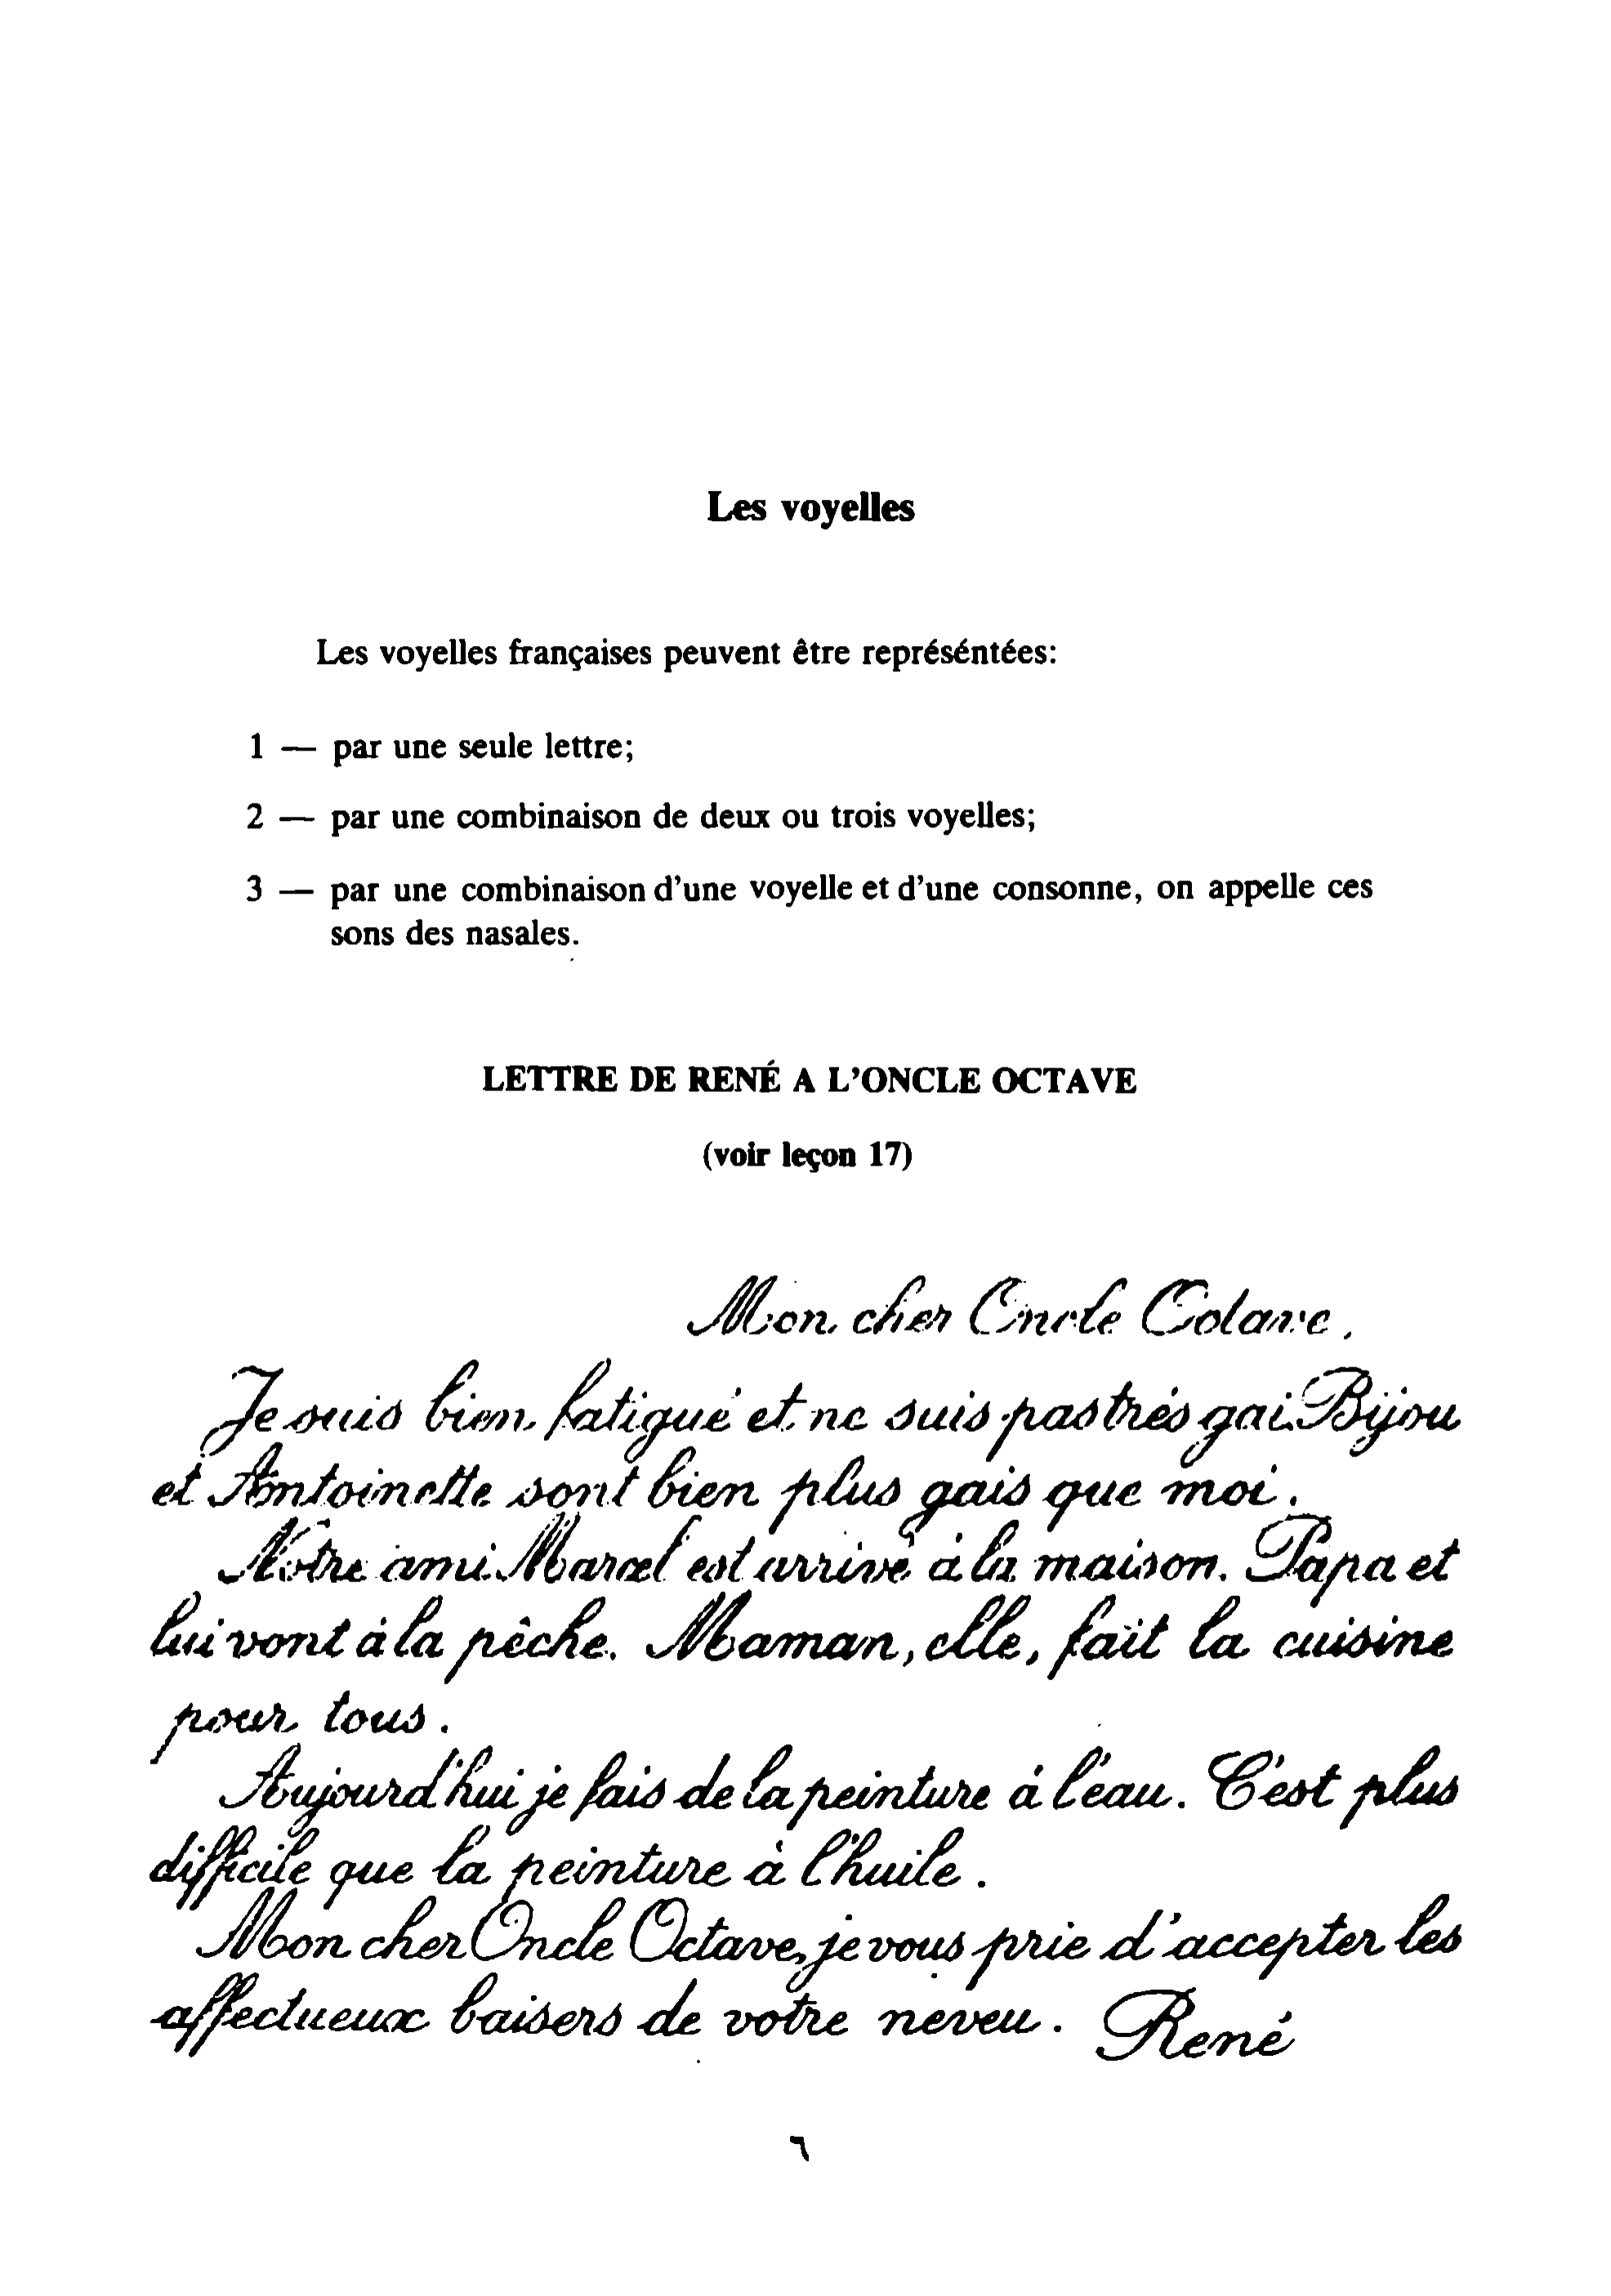 Les voyelles
Les voyelles françaises peuvent être représéntées:
1 — par une seule lettre;
2 — par une combinaison de deux ou trois voyelles;
3 — par une combinaison d'une voyelle et d'une consonne, on appelle ces
sons des nasales.
LETTRE DE RENÉ A L'ONCLE OCTAVE
(voir leçon 17)
Mon cher Oncle Octave,
Je suis bien fatigué et ne suis pas très gai. Bijou
et Antoinette sont bien plus gais que moi.
Notre ami Marcel est arrivé à la maison. Papa et
lui vont à la pêche. Maman, elle, fait la cuisine
pour tous.
Aujourd'hui je fais de la peinture à l'eau. C'est plus
difficile que la peinture à l'huile.
Mon cher Oncle Octave, je vous prie d'accepter les
affectueux baisers de votre neveu. René
٦